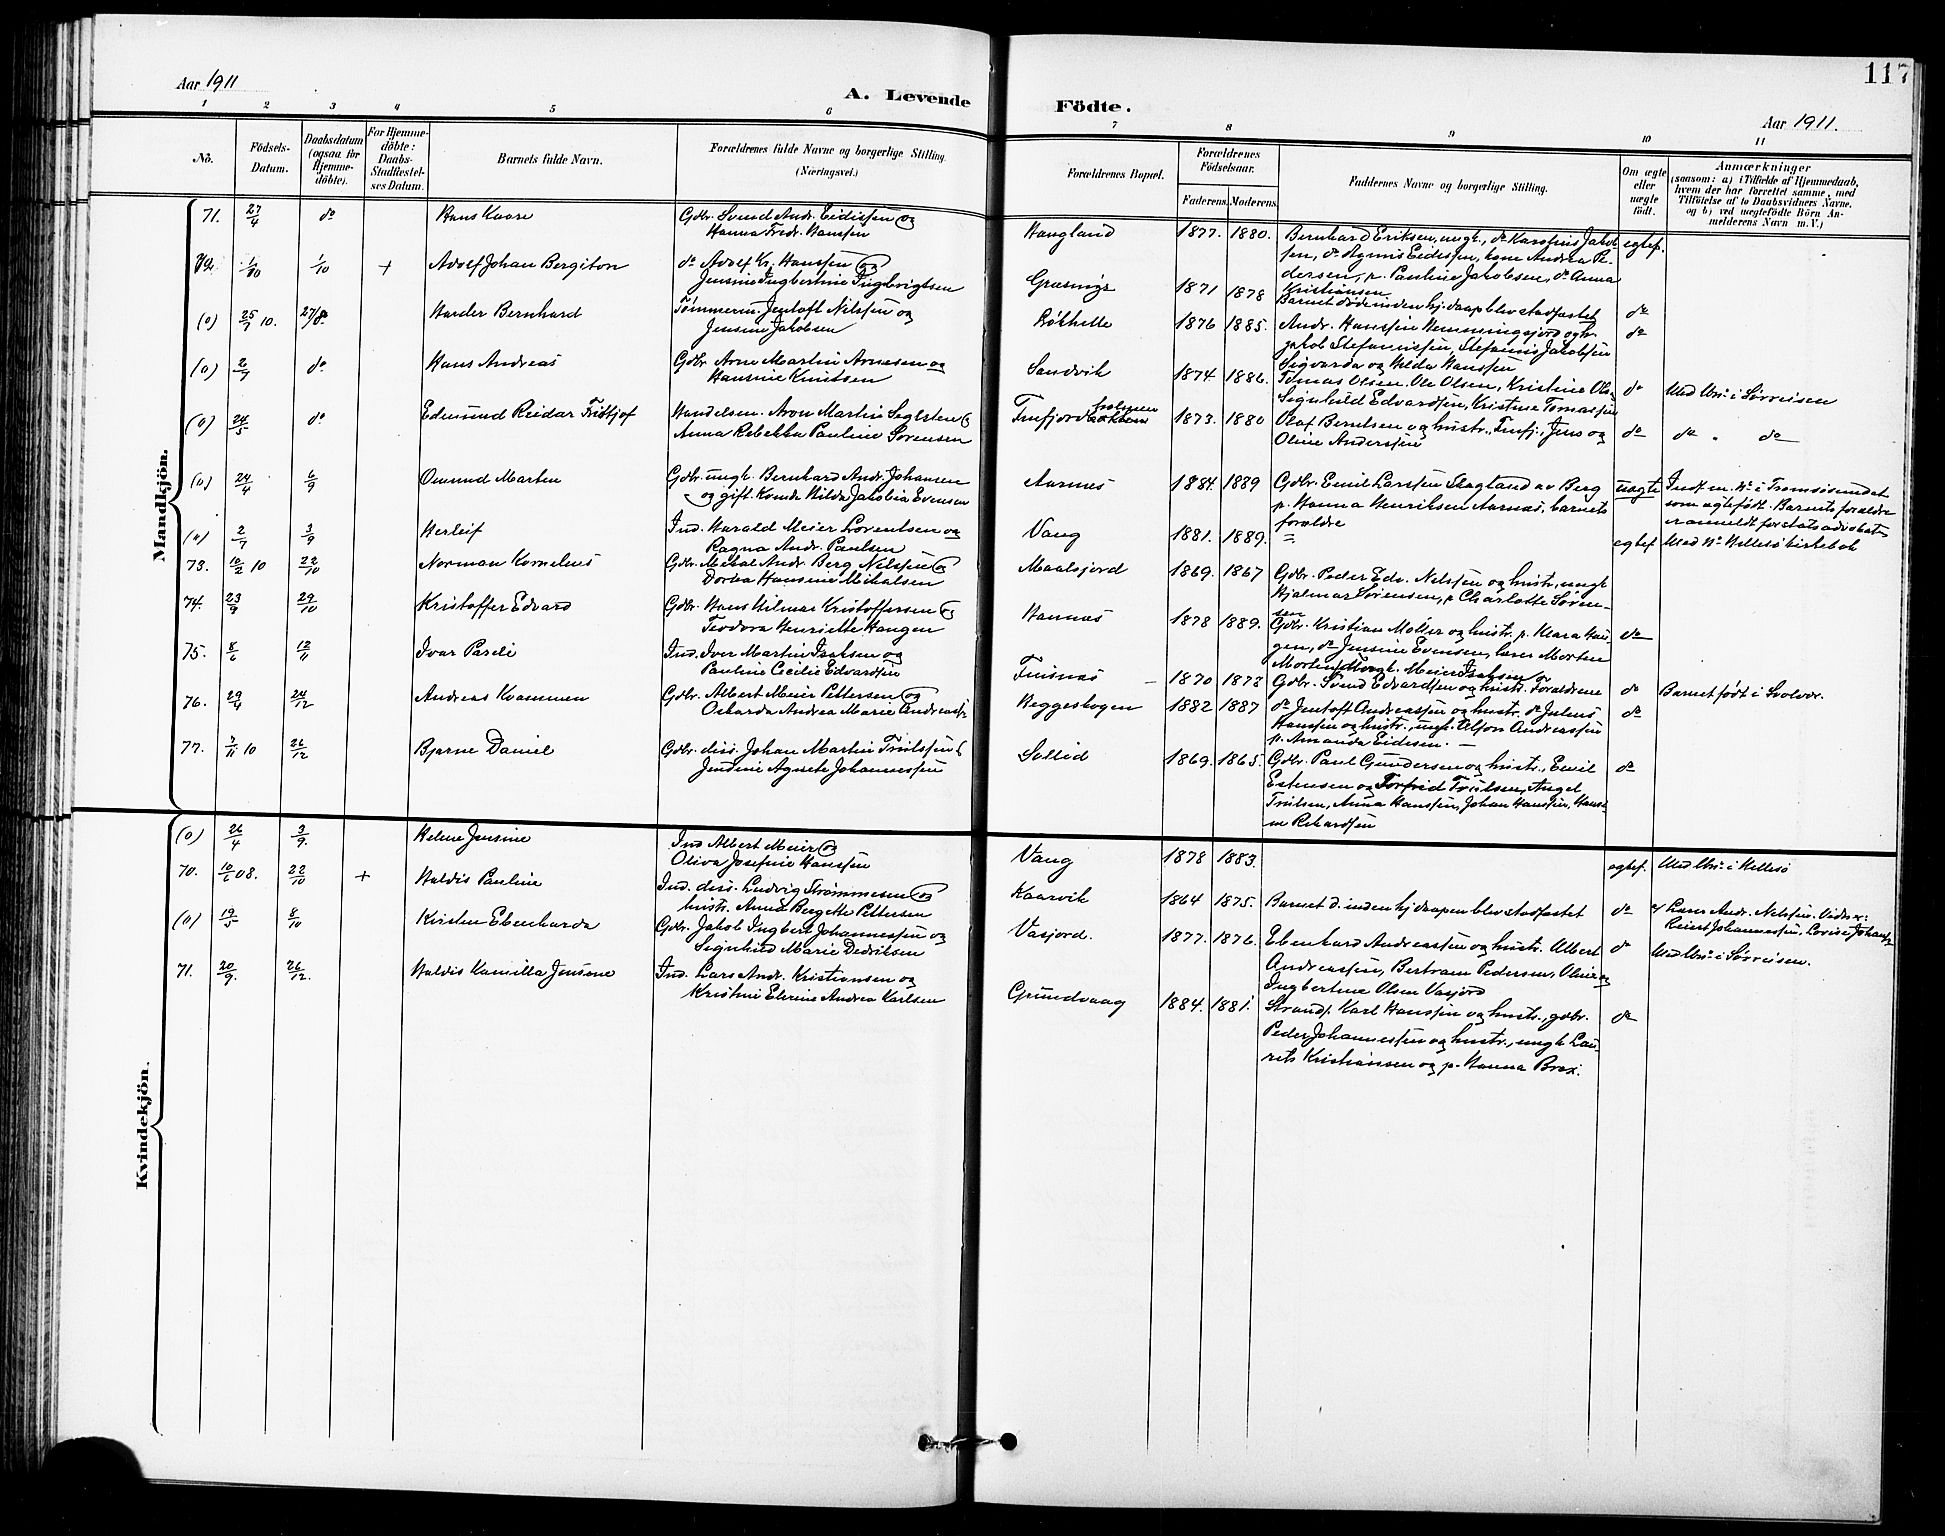 Aar 1911
A. Levende
Födte.
117
Aar 1911.
1 2 3 4 5 6
7 8 9 10 11
No.
Födsels-
Datum.
Daabsdatum
(ogsaa for
Hjemme-
döbte).
For Hjemme-
döbte:
Daabs-
Stadfæstel-
ses Datum.
Barnets fulde Navn.
Forældrenes fulde Navne og borgerlige Stilling.
(Næringsvei.)
Forældrenes Bopæl.
Forældrenes
Födselsaar.
Faderens. Moderens.
Faddernes Navne og borgerlige Stilling.
Om ægte
eller
uægte
födt.
Anmærkninger
(saasom: a) i Tilfælde af Hjemmedaab,
hvem der har forrettet samme, med
Tilföielse af to Daabsvidners Navne,
og b) ved uægtefödte Börn An-
melderens Navn m. V.)
Mandkjön.
71. 27/4 do Hans Kaare Gdbr. Svend Andr. Eidissen og
Hanna Fredr. Hanssen
Haugland 1877. 1880. Bernhard Eriksen, ungk., do Karolius Jakob-
sen, do Agnus Eidissen, kone Andrea Pe-
dersen, p. Pauline Jakobsen, do Anna
Kristiansen
egtef.
72. 1/10 1/10 + Adolf Johan Bergiton do Adolf Kr. Hanssen og
Jensine Ingbertine Ingbrigtsen
Grasmyr 1871 1878 Barnet døde inden hj.daap blev stadfæstet do
(0) 25/7 10. 27/8 Harder Bernhard Tømmerm. Jentoft Nilssen og
Jensine Jakobsen
Røkhelle 1876 1885. Andr. Hanssen Hemmingsjord, gdbr.
Jakob Stefanussen, Stefanus Jakobsen
Sigvarda og Hilda Hanssen
do
(0) 2/7 do Hans Andreas Gdbr. Arne Martin Arnesen og
Hansine Knutsen
Sandvik 1874 1886. Tomas Olsen. Ole Olsen, Kristine Ols-
Signhild Edvardsen, Kristine Tomassen
do Med Un. i Sørreisen
(0) 24/5 do Edmund Reidar Fridtjof Handelsm. Aron Martin Seglsten &
Anna Rebekka Pauline Sørensen
Finfjord holmen 1873. 1880 Olaf Berntsen og hustr., Finfj., Jens og
Oline Anderssen
do do " do
(0) 24/4 6/9 Omund Marten Gdbr. ungk. Bernhard Andr. Johansen
og gift. Kvinde Hilda Jakobia Evensen
Aarnes 1884. 1889 Gdbr. Emil Larssen Skogland av Berg
p. Hanna Henriksen Aarnes, barnets
forældre
uægte Indf. m. No i Tromsøsundet
som ægtefødt. Barnets forældre
er anmeldt for statsadvokat.
(0) 2/7 3/9 Herleif Ind. Harald Meier Lorentsen og
Ragna Andr. Paulsen
Vang 1881. 1889. = egtef. Med No Hillesø kirkebok
73. 10/2 10 22/10 Norman Kornelius Gdbr. Mikal Andr. Berg Nilssen og
Dortea Hansine Mikalsen
Maalsjord 1869. 1867 Gdbr. Peder Edv. Nilssen og hustr., ungk.
Hjalmar Sørensen, p. Charlotte Søren-
sen
74. 23/9 29/10 Kristoffer Edvard Gdbr. Hans Hilmar Kristoffersen og
Teodora Henriette Haugen
Hannæs 1878 1889. Gdbr. Kristian Moller og hustr. p. Klara Hau-
gen, do Jensine Evensen, lærer Morten
Mortensen, ungk. Meier Isaksen
do
75. 8/6 12/11 Ivar Pareli Ind. Iver Martin Isaksen og
Pauline Cecilie Edvardsen
Finsnæs 1870 1873 Gdbr. Svend Edvardsen og hustr. Forældrene do Barnet født i Svolvær.
76. 29/4 24/12 Andreas Kvammen Gdbr. Albert Meier Pettersen og
Oskarda Andrea Marie Andreass.
Reggeskogen 1882 1887 do Jentoft Andreassen og hustr. do Julius
Hanssen og hustr., ungk. Alfon Andreassen
p. Amanda Eidesen. —
do
77. 7/11 10 26/12 Bjarne Daniel Gdbr. diss. Johan Martin Trulssen &
Jensine Agnete Johannessen
Sollid 1869. 1865. Gdbr. Paul Gundersen og hustr., Emil
Estensen og Torfrid Trulsen, Angel
Trulsen, Anna Hanssen, Johan Hanssen, Hansi-
ne Rikardsen
do
Kvindekjön.
(0) 26/4 3/9. Helene Jensine Ind Albert Meier og
Oliva Josefine Hanssen
Vang 1878 1883. egtef. Med Un. i Hillesø
70. 10/6 08. 22/10 + Haldis Pauline Ind. diss. Ludvig Strømmesen og
hustr. Anna Bergette Pettersen
Kaarvik 1864 1875. Barnet d. inden hj.daapen blev stadfæstet do af Lærer Andr. Nilssen. Vidner:
Reiert Johannessen, Lovise Johans.
(0) 19/5 8/10 Kirsten Ebenharda Gdbr. Jakob Ingbert Johannessen og
Signhild Marie Dedriksen
Vasjord. 1877. 1876. Ebenhard Andreassen og hustr. Albert
Andreassen, Bertram Pedersen, Oline og
Ingbertine Olsen Vasjord
do Med Un. i Sørreisen.
71. 20/9. 26/12. Haldis Kamilla Jensine Ind. Lars Andr. Kristiansen og
Kristine Elerine Andrea Karlsen
Grundvaag 1884. 1881. Strands. Karl Hanssen og hustr., gdbr.
Peder Johannessen og hustr., ungk. Lau-
rits Kristiansen og p. Hanna Brox.
do